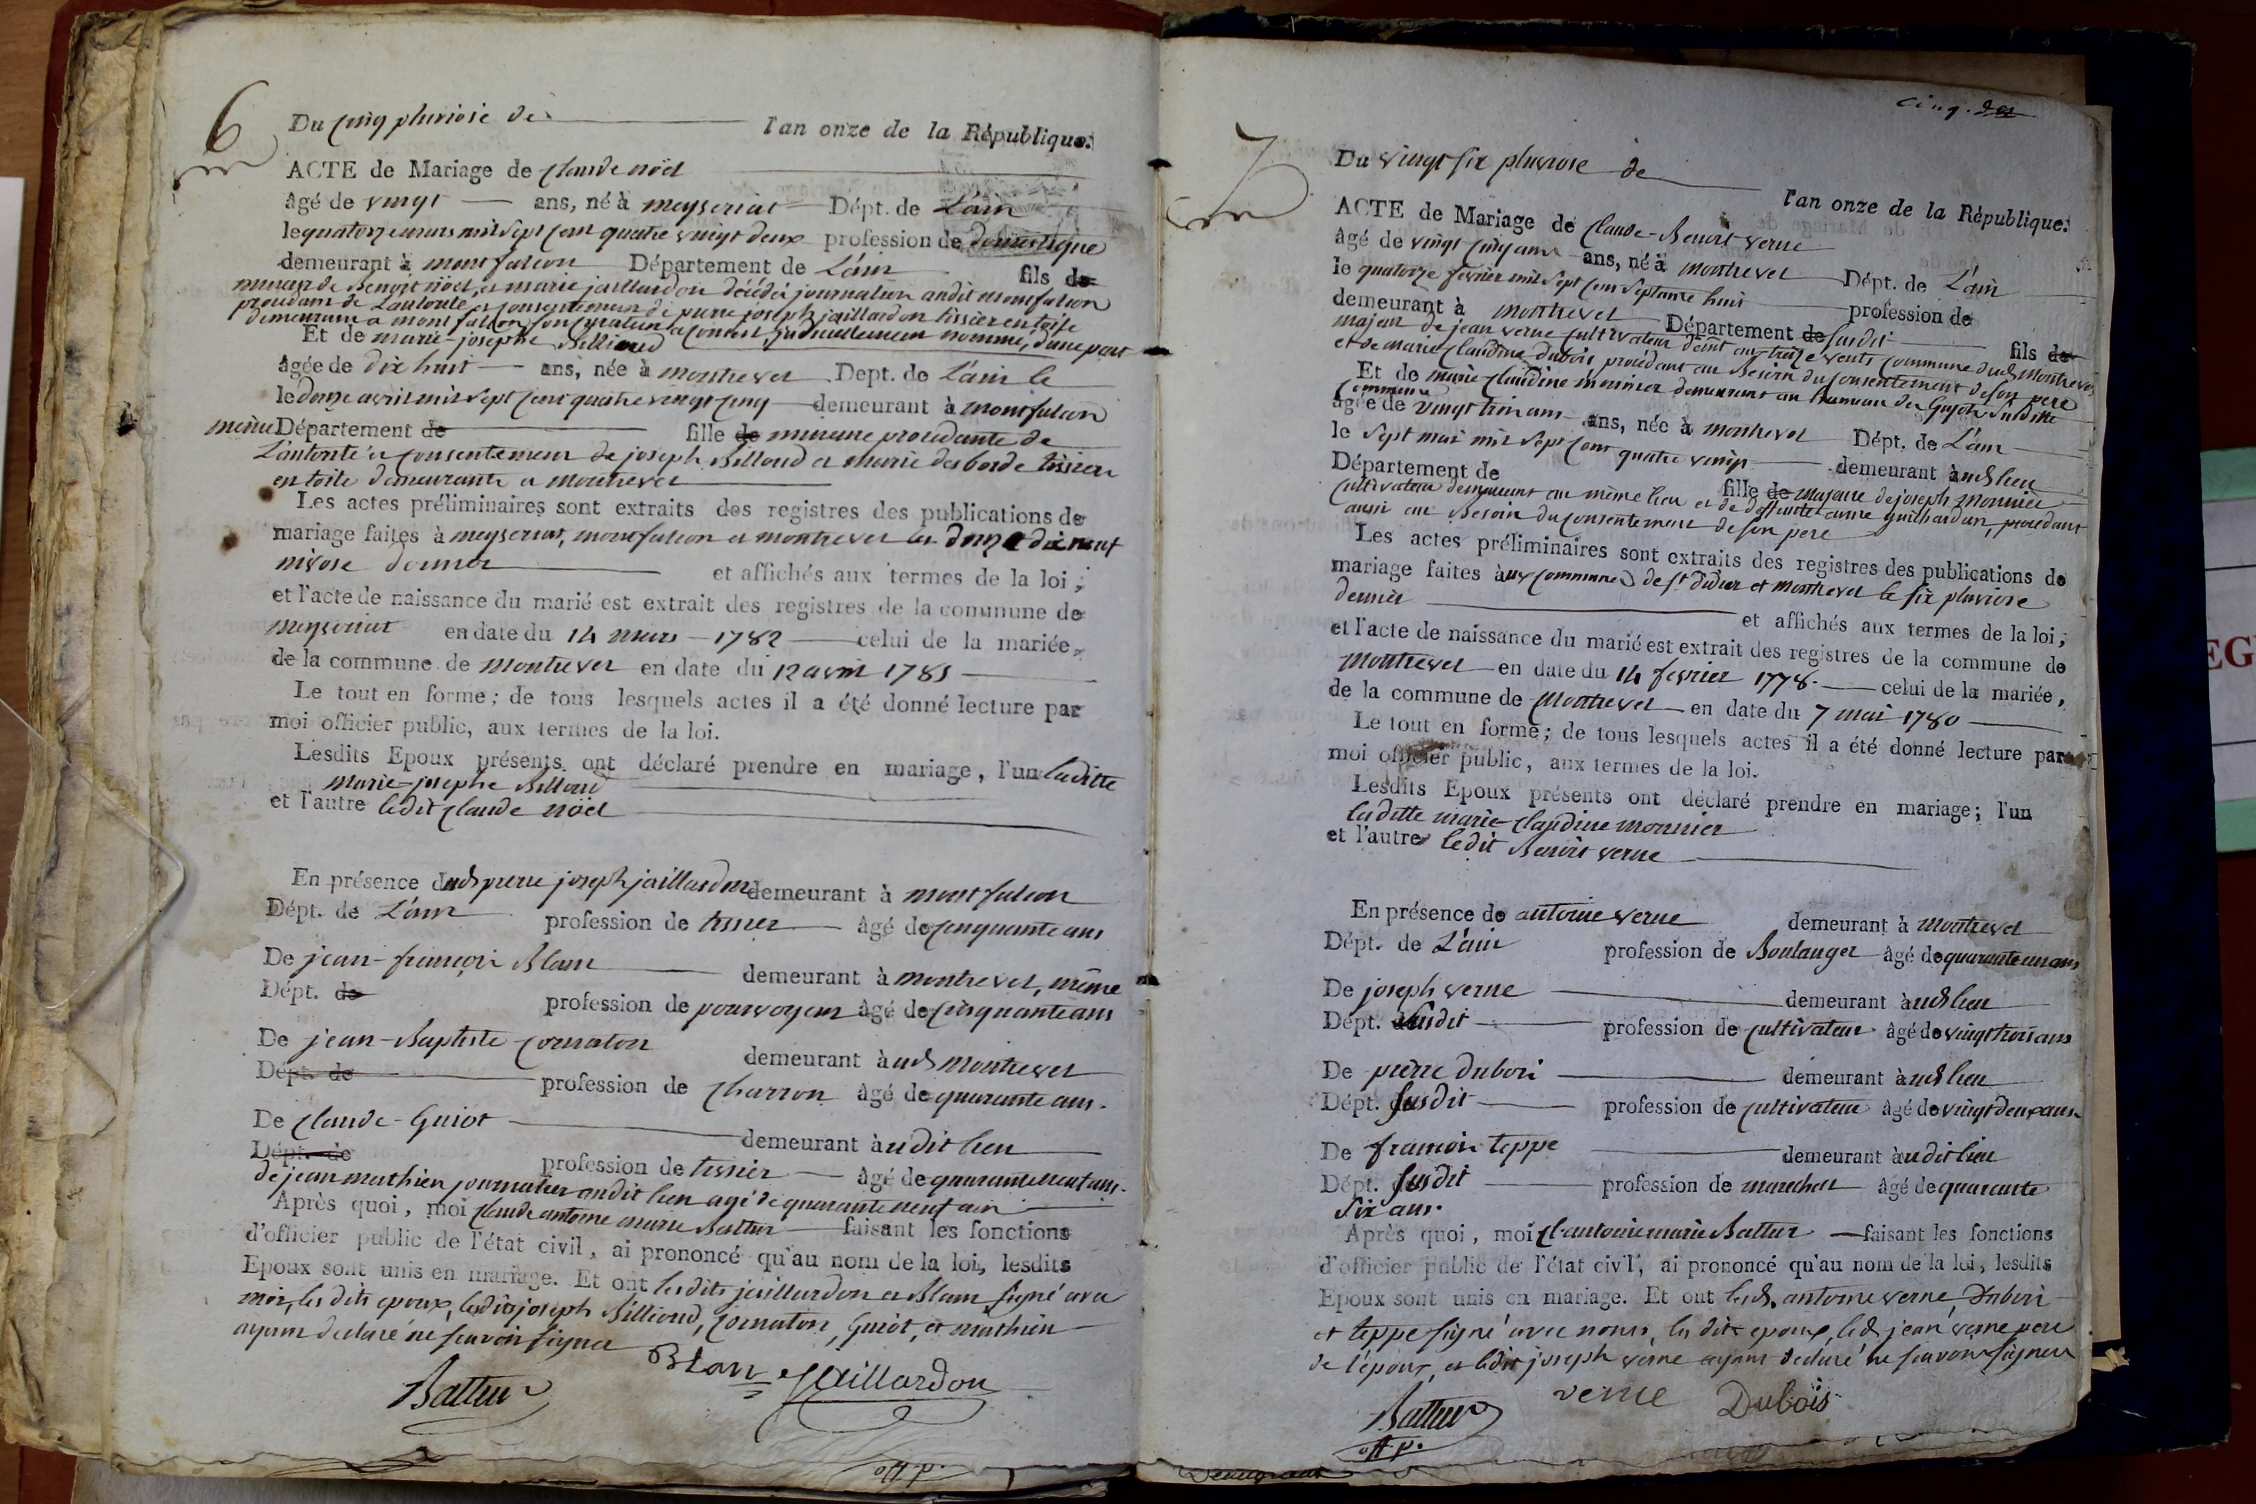 6
Du cinq pluviose de l'an onze de la République.
ACTE de Mariage de Claude noël
âgé de vingt ans, né à meyseriat Dépt. de L'ain
le quatorze mars mil sept cent quatre vingt deux profession de domestique
demeurant à montfalcon Département de L'ain fils de
mineur de Benoit noël, et marie jaillardon décédés journalier audit montfalcon
procedant de L'autorité et consentement de pierre joseph jaillardon tissier en toile
demeurant a montfalcon son curateur a conseil judiciellement nommé, d'une part
Et de marie-josephe Billioud
âgée de dix huit ans, née à montrevel Dept. de L'ain le
le douze avril mil sept cent quatre vingt cinq demeurant à montfalcon
même Département de fille de mineure procedante de
L'autorité et consentement de joseph Billoud et marie desborde tissier
en toile demeurants a Montrevel
Les actes préliminaires sont extraits des registres des publications de
mariage faites à meyseriat, montfalcon et montrevel les douze dix neuf
nivose dernier et affichés aux termes de la loi;
et l'acte de naissance du marié est extrait des registres de la commune de
meyseriat en date du 14 mars 1782 celui de la mariée,
de la commune de Montrevel en date du 12 avril 1785
Le tout en forme; de tous lesquels actes il a été donné lecture par
moi officier public, aux termes de la loi.
Lesdits Epoux présents ont déclaré prendre en mariage, l'un laditte
Marie-josephe Billoud
et l'autre ledit Claude noël
En présence dud pierre joseph jaillardon demeurant à montfalcon
Dépt. de L'ain profession de tissier âgé de cinquante ans
De jean-françois Blanc demeurant à montrevel, même
Dépt. de profession de pourvoyeur âgé de cinquante ans
De jean-Baptiste Cornaton demeurant à ud Montrevel
Dépt. de profession de Charron âgé de quarante ans.
De Claude-Guiot demeurant à udit lieu
Dépt. de profession de tissier âgé de quarante neuf ans.
de jean mathieu journalier audit lieu agé de quarante neuf ans
Après quoi, moi Claude antoine marie Battur faisant les fonctions
d'officier public de l'état civil, ai prononcé qu'au nom de la loi, lesdits
Epoux sont unis en mariage. Et ont lesdits jaillardon et Blanc signé avec
moi, les dits epoux, lesdits joseph Billioud, Cornaton, Guiot, et mathieu
ayant declaré ne scavoir signer
Blanc jaillardon
Battur
off p.
cinq.
7
Du vingt six pluviose de l'an onze de la République.
ACTE de Mariage de Claude-Benoit verne
âgé de vingt cinq ans ans, né à Montrevel Dépt. de L'ain
le quatorze fevrier mil sept cent septante huit profession de
demeurant à Montrevel Département de susdit fils de
majeur de jean verne cultivateur demt aux treize vents commune dud Montrevel
et de marie Claudine dubois procédant au Besoin du consentement de son pere
Et de marie Claudine monnier demeurant au hameau des Guyots susditte
commune
âgée de vingt trois ans ans, née à montrevel Dépt. de L'ain
le sept mai mil sept cent quatre vingt demeurant à ud lieu
Département de fille de majeure de joseph monnier
cultivateur demeurant au même lieu et de deffunte anne guilhardin, procedant
aussi au Besoin du consentement de son pere
Les actes préliminaires sont extraits des registres des publications de
mariage faites à ux communes de st didier et montrevel le six pluviose
dernier et affichés aux termes de la loi;
et l'acte de naissance du marié est extrait des registres de la commune de
Montrevel en date du 14 fevrier 1778. celui de la mariée,
de la commune de Montrevel en date du 7 mai 1780
Le tout en forme; de tous lesquels actes il a été donné lecture par
moi officier public, aux termes de la loi.
Lesdits Epoux présents ont déclaré prendre en mariage; l'un
laditte marie-Claudine monnier
et l'autre ledit Benoit verne
En présence de antoine verne demeurant à Montrevel
Dépt. de L'ain profession de Boulanger âgé de quarante un ans
De joseph verne demeurant à ud lieu
Dépt. susdit profession de cultivateur âgé de vingt trois ans
De pierre dubois demeurant à ud lieu
Dépt. susdit profession de cultivateur âgé de vingt deux ans
De francois teppe demeurant à udit lieu
Dépt. susdit profession de marechal âgé de quarante
six ans.
Après quoi, moi Cl antoine marie Battur faisant les fonctions
d'officier public de l'état civil, ai prononcé qu'au nom de la loi, lesdits
Epoux sont unis en mariage. Et ont lesd. antoine verne, Dubois
et teppe signé avec nous, les dits epoux, led jean verne pere
de l'epoux, et ledit joseph verne ayant declaré ne scavoir signer
verne Dubois
Battur
off p.